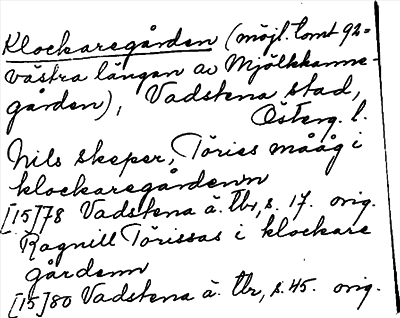 Klockaregården (möjl. tomt 92=
västra längan av Mjölkkanne-
gården), Vadstena stad,
Österg. l.
Nils skeper, Töries mååg i
klockaregårdenn
[15]78 Vadstena ä. Tb, s. 17. orig.
Ragnill Törissas i klockare
gårdenn
[15]80 Vadstena ä. Tb, s. 45. orig.